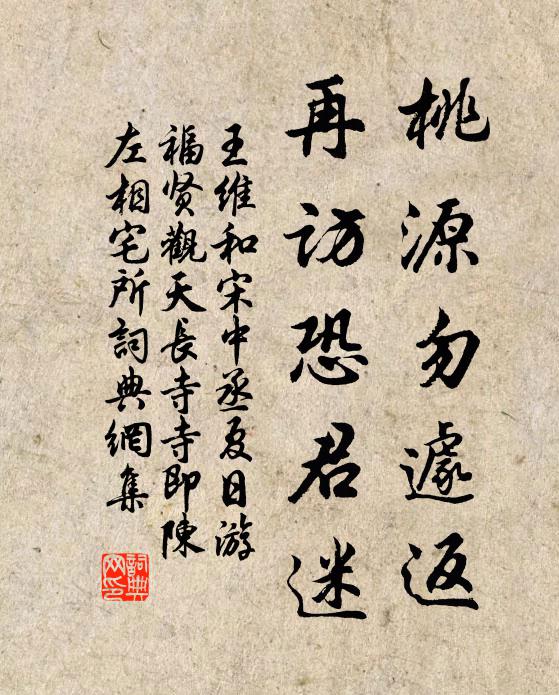 桃源勿遽返
再访恐君迷
王维和宋中丞夏日游
福贤觀天長寺寺即陳
左相宅所詞典網集
詞典网印